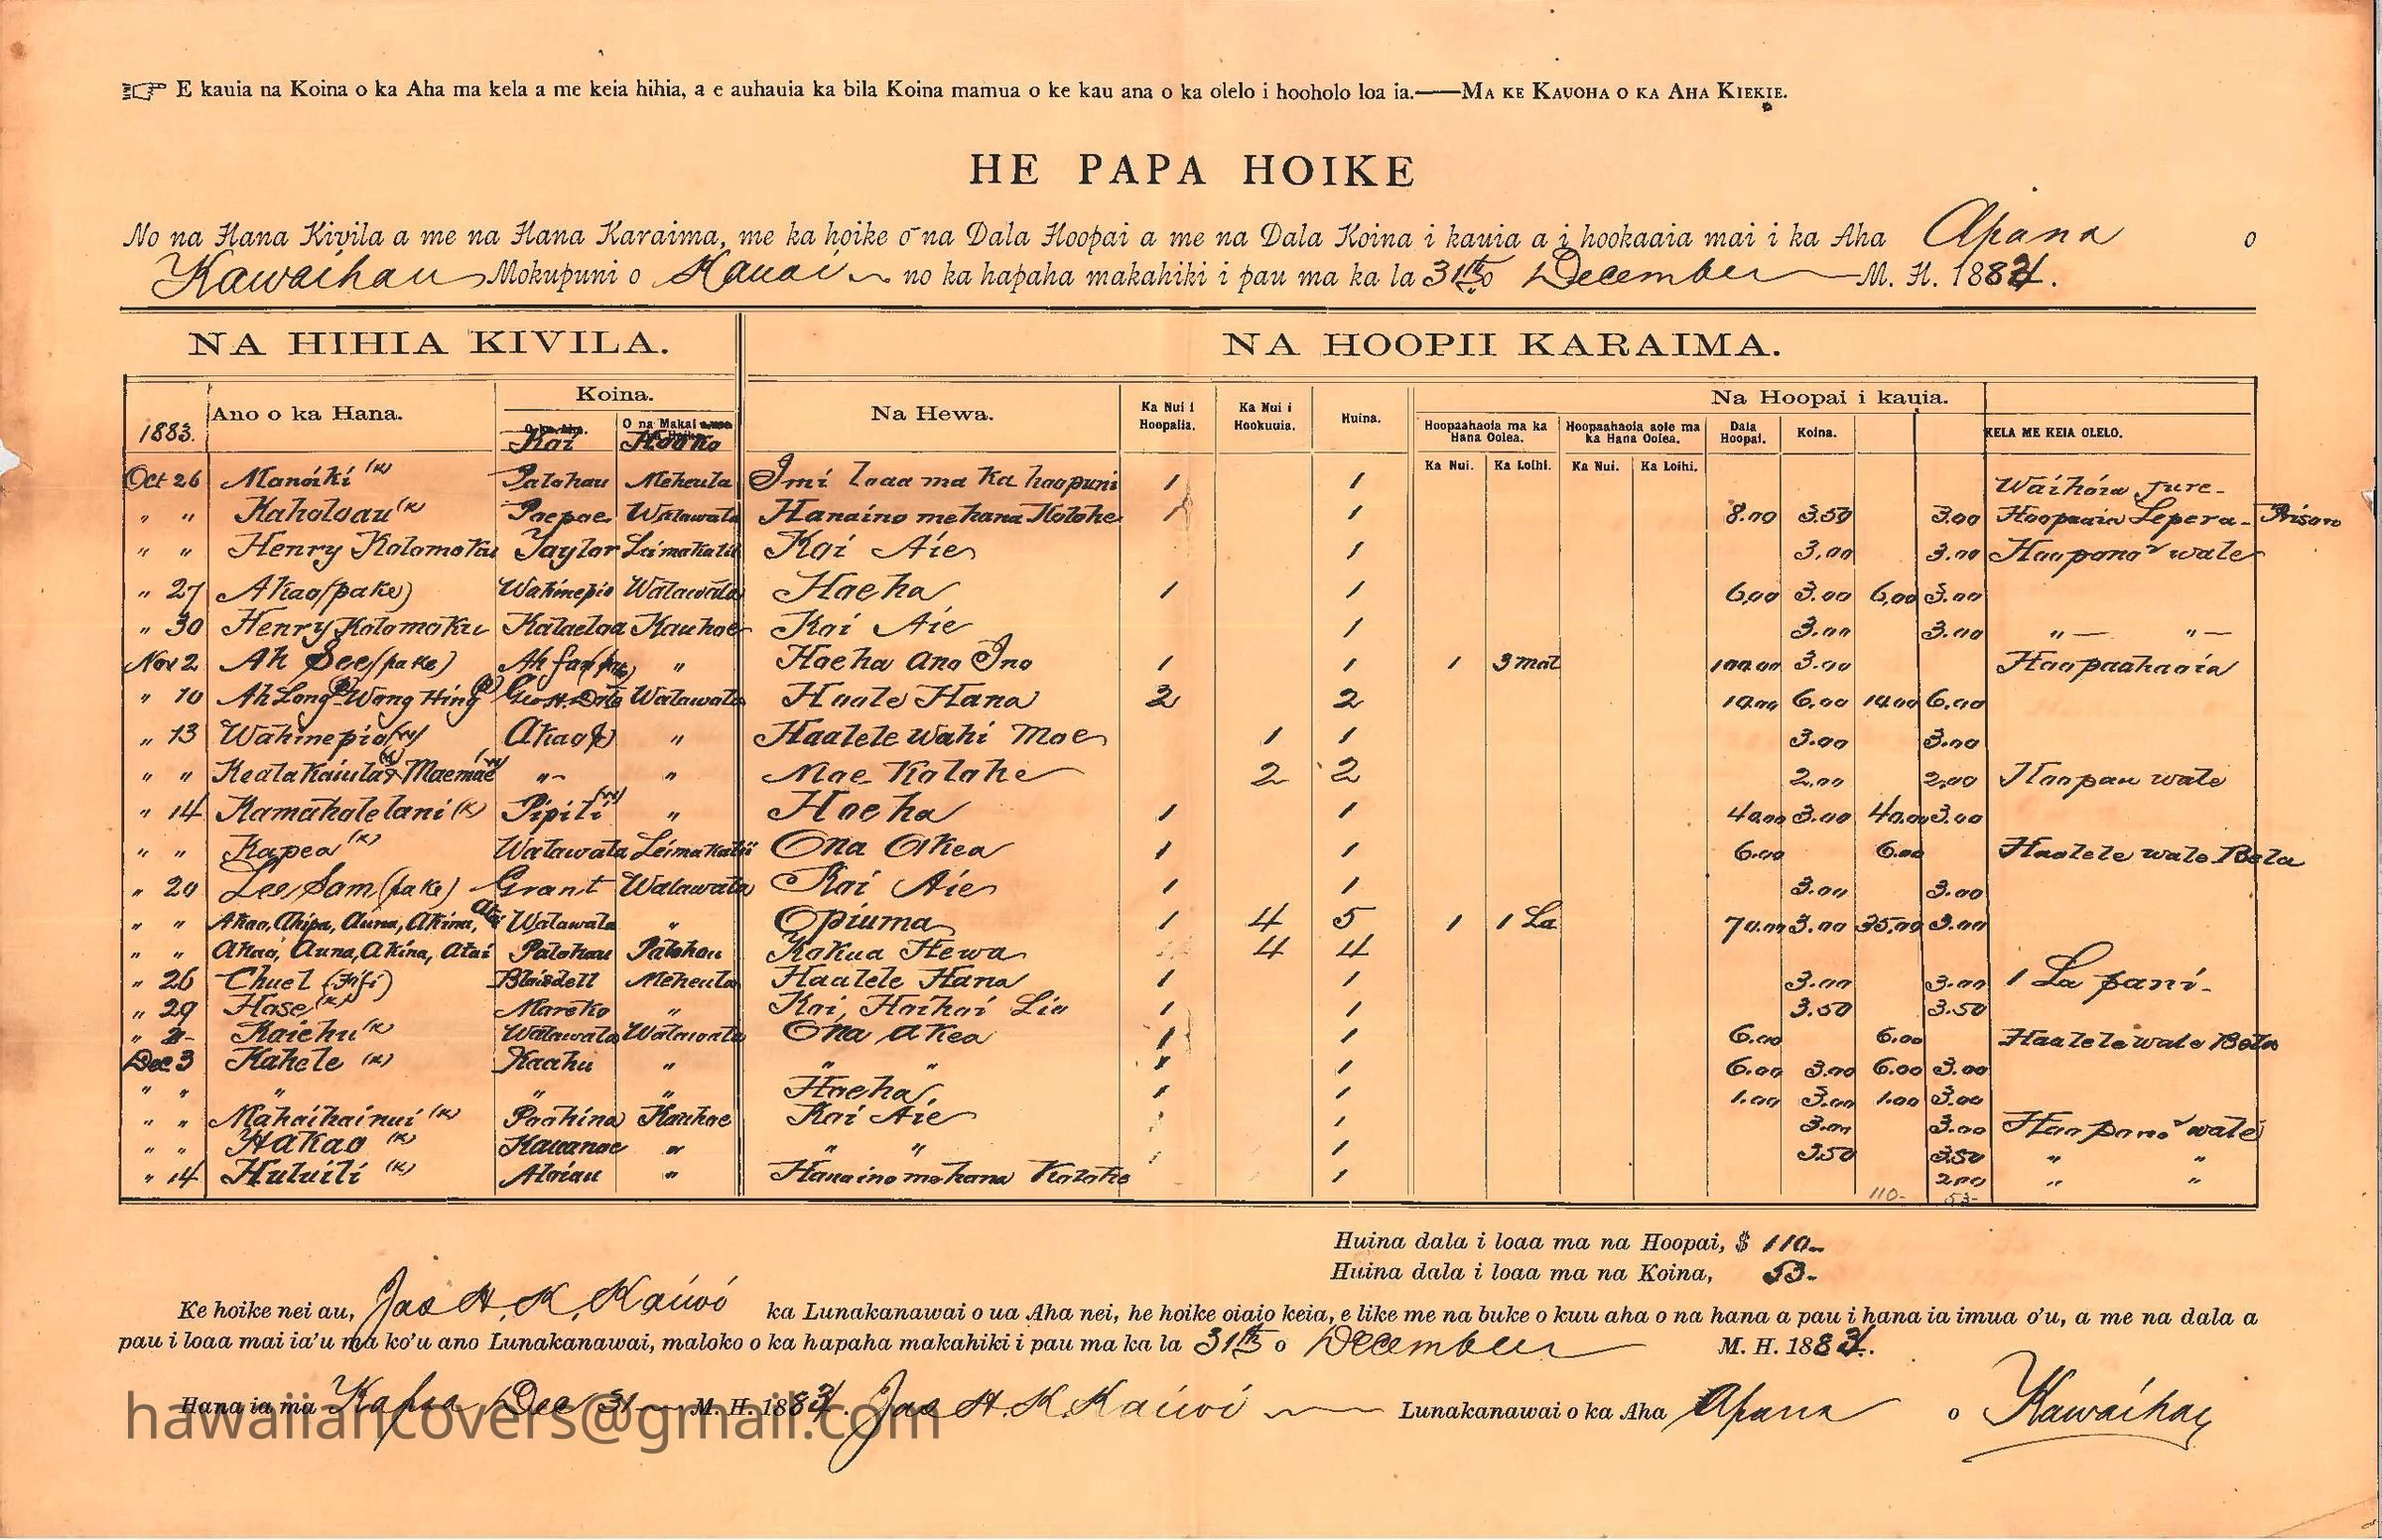 E kauia na Koina o ka Aha ma kela a me keia hihia, a e auhauia ka bila Koina mamua o ke kau ana o ka olelo i hooholo loa ia.——MA KE KAUOHA O KA AHA KIEKIE.
HE PAPA HOIKE
No na Hana Kivila a me na Hana Karaima, me ka hoike o na Dala Hoopai a me na Dala Koina i kauia a i hookaaia mai i ka Aha Apana o
Kawaihau Mokupuni o Kauai no ka hapaha makahiki i pau ma ka la 31th o December M. H. 1883.
NA HIHIA KIVILA. NA HOOPII KARAIMA.
1883. Ano o ka Hana. Koina. Na Hewa. Ka Nui i Hoopaiia. Ka Nui i Hookuuia. Huina. Na Hoopai i kauia.
Kai O na Makai Hooko Hoopaahaoia ma ka Hana Oolea. Hoopaahaoia aole ma ka Hana Oolea. Dala Hoopai. Koina. KELA ME KEIA OLELO.
Ka Nui. Ka Loihi. Ka Nui. Ka Loihi.
Oct 26 Manoiki (k) Palohau Meheula Imi loaa ma ka hoopuni 1 1 Waihoia
" " Kaholoau (k) Paepae Walawala Hanaino me hana Kolohe 1 1 8.00 3.50 3.00 Hoopaaia Lepera - Prison
" " Henry Kolomoku Taylor Leimakalii Kai Aie 1 3.00 3.00 Hoopono wale
" 27 Akao (pake) Wahinepio Walawala Hoeha 1 1 6.00 3.00 6.00 3.00
" 30 Henry Kolomoku Kalaeloa Kauhoe Kai Aie 1 3.00 3.00 " — " —
Nov 2 Ah See (pake) " Hoeha Ano Ino 1 1 1 3 mal 100.00 3.00 Hoopaahaoia
" 10 Ah Long Wong Hing Walawala Haale Hana 2 2 10.00 6.00 10.00 6.00
" 13 Wahinepio (w) Akao " Haalele Wahi Moe 1 1 3.00 3.00
" " Kealakaiula & Maemae (w) " " Moe Kolohe 2 2 2.00 2.00 Hoopau wale
" 14 Kamakolelani (k) Pipili (w) " Hoeha 1 1 40.00 3.00 40.00 3.00
" " Kapea (k) Walawala Leimakalii Ona Akea 1 1 6.00 6.00 Haalele wale Bela
" 20 Lee Sam (pake) Grant Walawala Kai Aie 1 1 3.00 3.00
" " Akao, Ahipa, Auna, Akina, Atai Walawala " Opiuma 1 4 5 1 1 La 70.00 3.00 35.00 3.00
" " Akao, Auna, Akina, Atai Palohau Palohau Kokua Hewa 4 4
" 26 Chuel (Fifi) Blaisdell Meheula Haalele Hana 1 1 3.00 3.00 1 La pani.
" 29 Hose (k) Mareko " Kai, Haihai Lio 1 1 3.50 3.50
" " Kaiehu (k) Walawala Walawala Ona Akea 1 1 6.00 6.00 Haalele wale Bela
Dec 3 Kahele (k) Kaahu " " " 1 1 6.00 3.00 6.00 3.00
" " " " " Hoeha 1 1 1.00 3.00 1.00 3.00
" " Mahaihainui (k) Paahina Kauhoe Kai Aie 1 3.00 3.00 Hoopono wale
" " Hakao (k) Kauanoe " " " 1 3.50 3.50 " "
" 14 Huluili (k) Alaiau " Hanaino me hana Kolohe 1 2.00 " "
110- 53-
Huina dala i loaa ma na Hoopai, $ 110-
Huina dala i loaa ma na Koina, 53-
Ke hoike nei au, Jas H. K. Kaiwi ka Lunakanawai o ua Aha nei, he hoike oiaio keia, e like me na buke o kuu aha o na hana a pau i hana ia imua o'u, a me na dala a
pau i loaa mai ia'u ma ko'u ano Lunakanawai, maloko o ka hapaha makahiki i pau ma ka la 31th o December M. H. 1883.
Hana ia ma Kapaa Dec 31 M. H. 1883 Jas H. K. Kaiwi Lunakanawai o ka Aha Apana o Kawaihau
hawaiiancovers@gmail.com